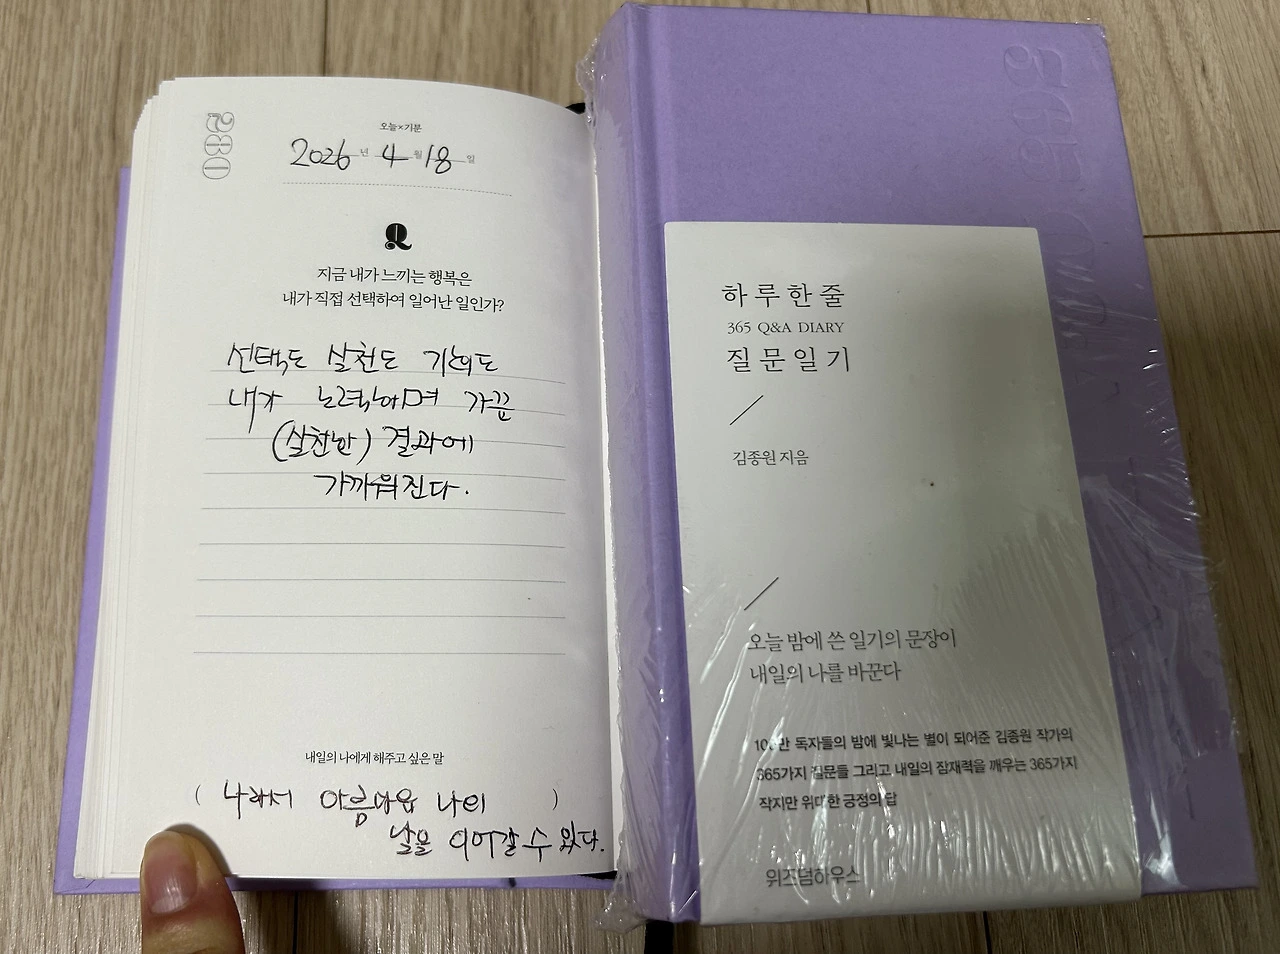 280
오늘×기분
2026년 4월 18일
Q
지금 내가 느끼는 행복은
내가 직접 선택하여 일어난 일인가?
선택도 실천도 기회도
내가 노력하며 가끔
(실천한) 결과에
가까워진다.
내일의 나에게 해주고 싶은 말
( 나라서 아름다운 나의 )
날을 이어갈 수 있다.
하루 한 줄
365 Q&A DIARY
질문 일기
김종원 지음
오늘 밤에 쓴 일기의 문장이
내일의 나를 바꾼다
100만 독자들의 밤에 빛나는 별이 되어준 김종원 작가의
365가지 질문들 그리고 내일의 잠재력을 깨우는 365가지
작지만 위대한 긍정의 답
위즈덤하우스